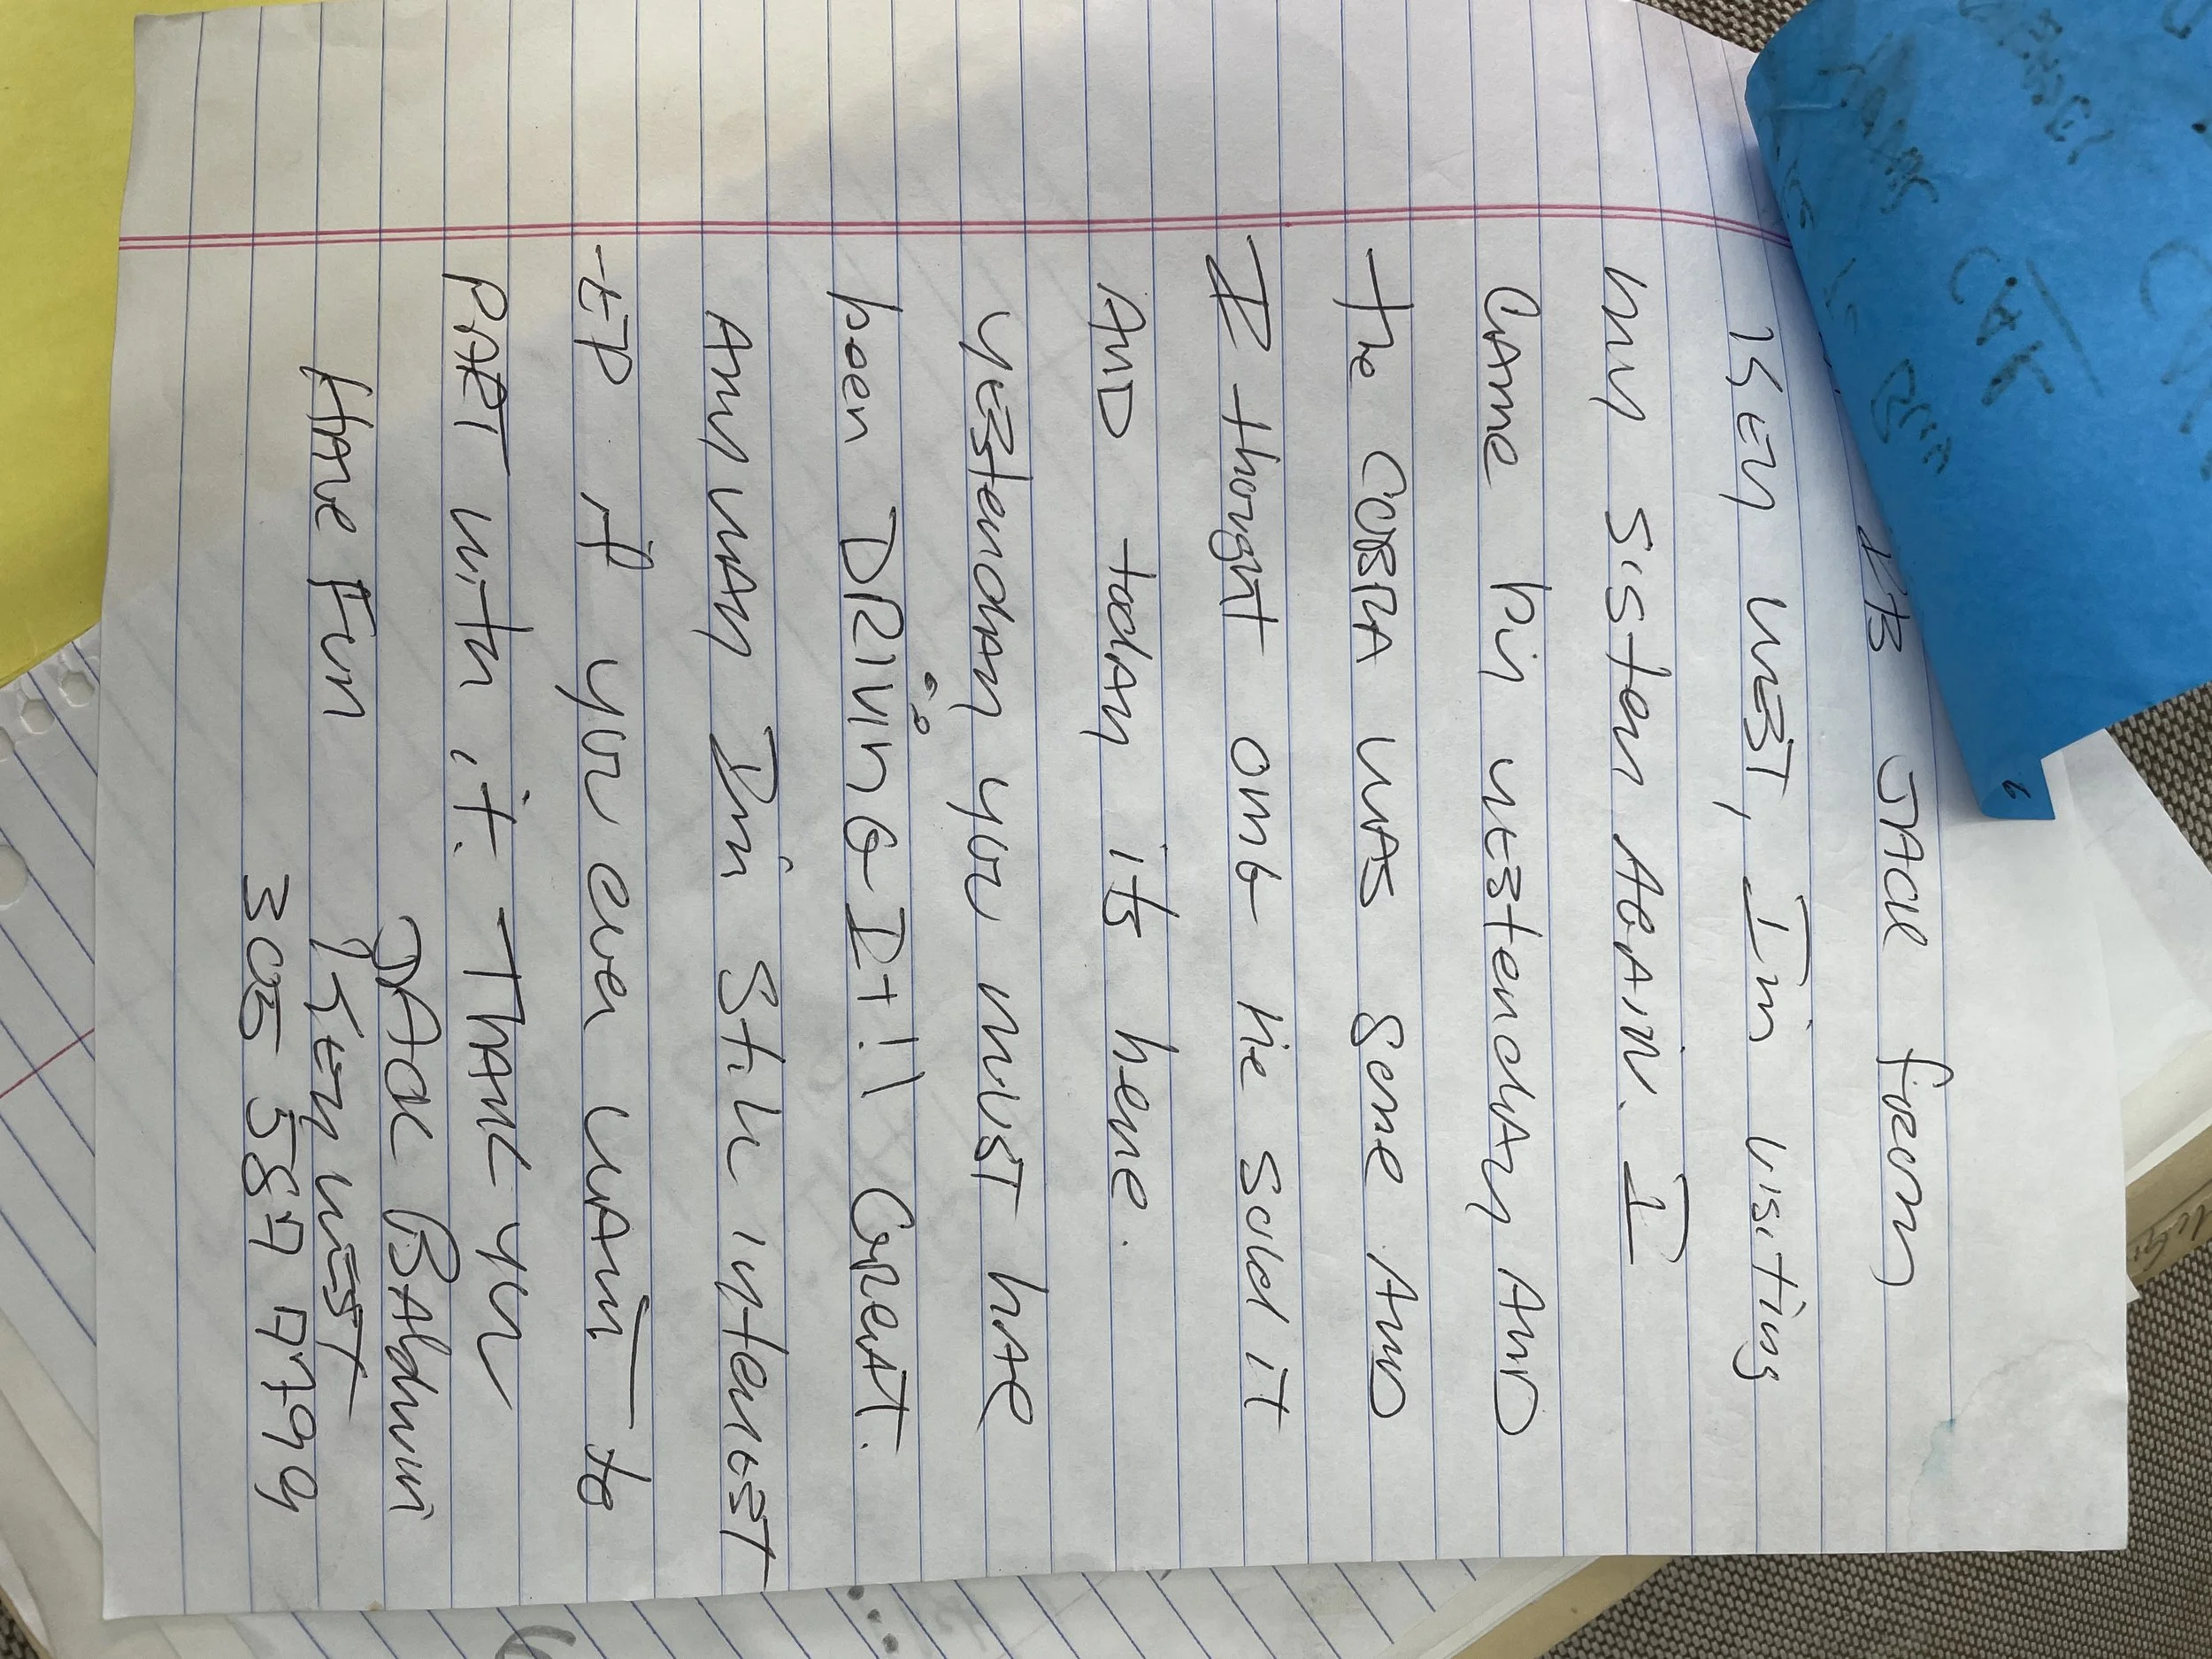 JACK from
KEY WEST, Im visiting
my sister AGAIN. I
CAME by yesterday AND
the COBRA WAS gone AND
I thought OMG he sold it
AND today its here.
Yesterday you must have
been DRIVING It!! Great.
ANYWAY Im still interest
-ED if you ever WANT to
PART with it. THANK you
JACK BAldwin
HAVE Fun
KEY WEST
305 587 7799